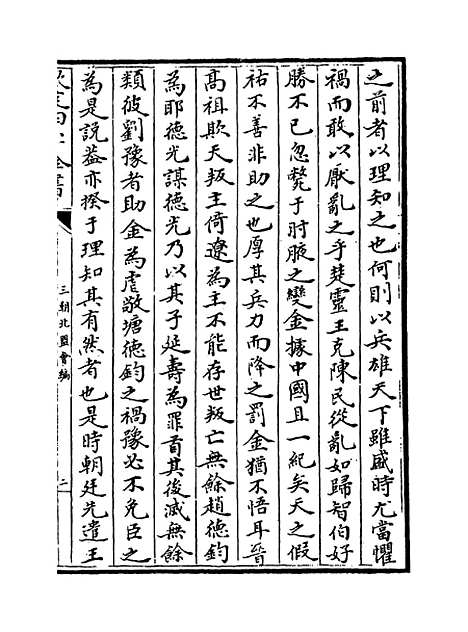 之前者以理知之也何則以兵雄天下雖盛時尤當懼
禍而敢以厭亂之乎楚靈王克陳民從亂如歸智伯好
勝不已忽斃于肘腋之變金據中國且一紀矣天之假
祐不善非助之也厚其兵力而降之罰金猶不悟耳晉
高祖欺天叛主倚遼為主不能存世叛亡無餘趙德鈞
為耶德光謀德光乃以其子延壽為罪首其後滅無餘
類彼劉豫者助金為虐敬塘德鈞之禍豫必不免臣之
為是說葢亦揆于理知其有然者也是時朝廷先遣王
欽定四庫全書
三朝北盟會編
二